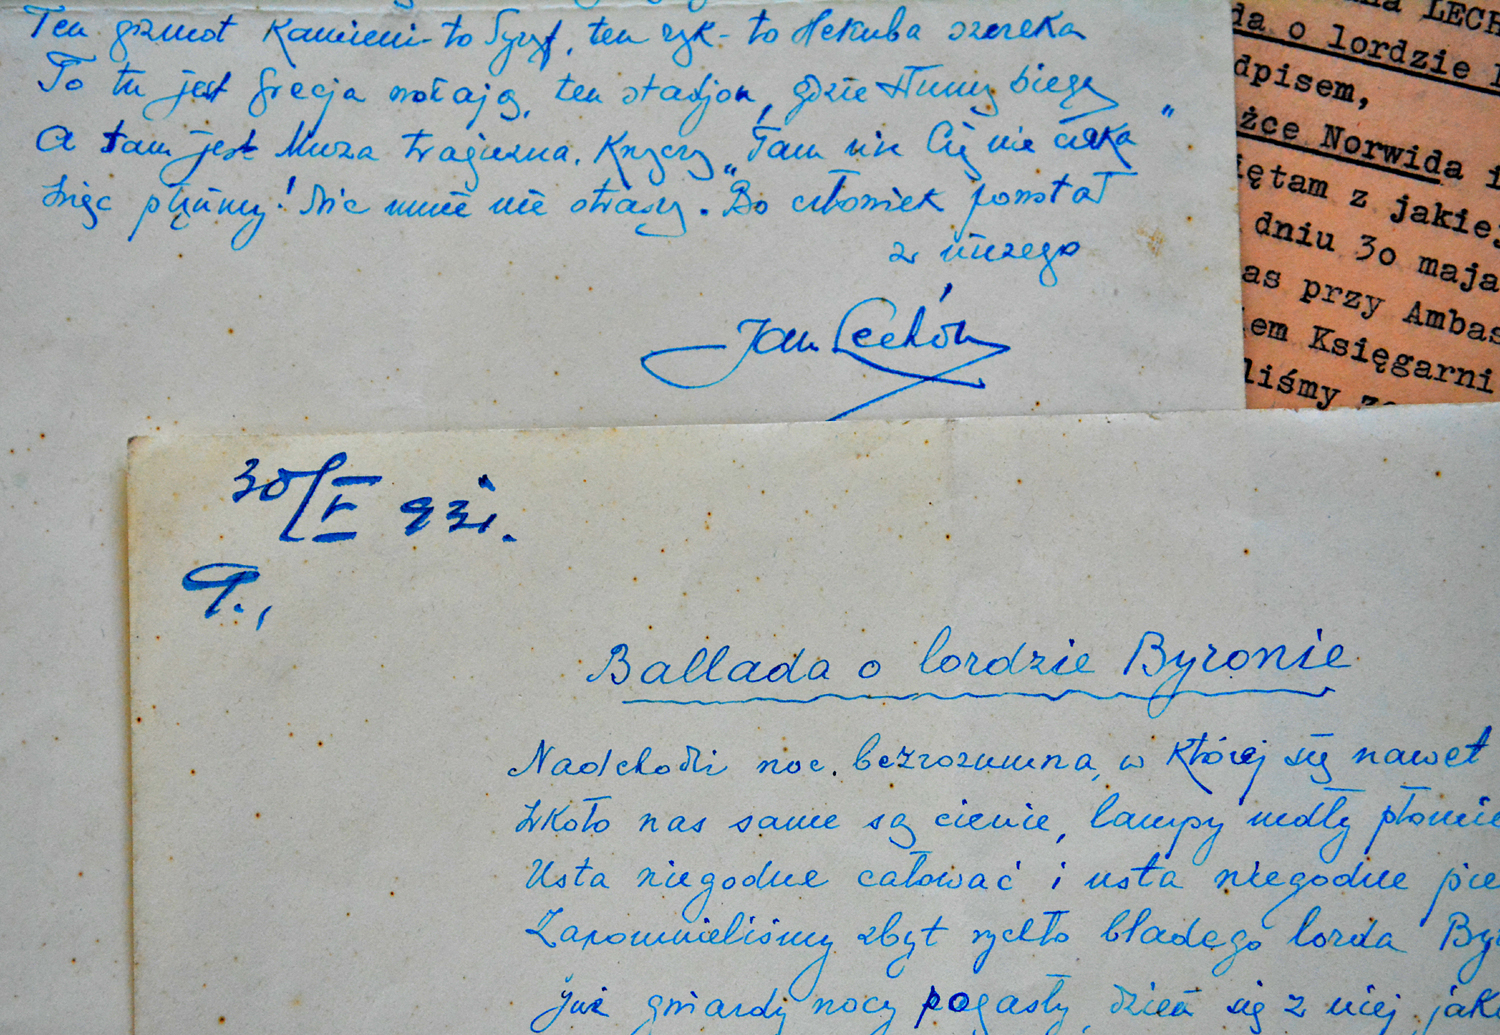 Ten grzmot kamieni - to Syzyf, ten ryk - to Hekuba szczeka
To tu jest Grecja wołają, ten stadjon, gdzie tłumy biegą
A tam jest Muza tragiczna. Krzyczy „Tam nic Cię nie czeka"
Więc płyńmy! Nic mnie nie straszy. Bo człowiek powstał
z niczego
Jan Lechoń
LECH
da o lordzie
dpisem,
żce Norwida i
iętam z jakiej
dniu 30 maja
as przy Ambas
em Księgarni
liśmy
30/V 93
Ballada o lordzie Byronie
Nadchodzi noc bezrozumna, w której się nawet
Wkoło nas same są cienie, lampy mdły płomie
Usta niegodne całować i usta niegodne pie
Zapomnieliśmy zbyt rychło bladego lorda By
Już gwiazdy nocy pogasły, dzień się z niej jak